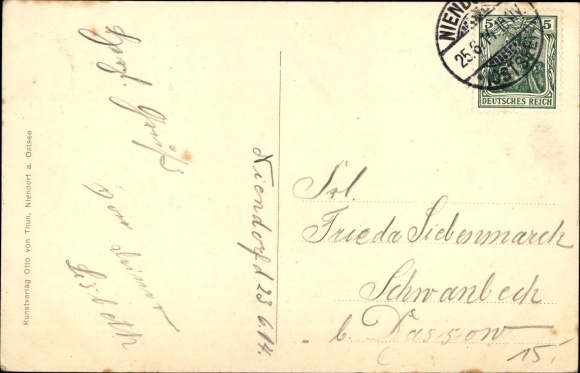 Herzl. Grüße
von Deiner
Lisbeth
Niendorf d 23.6.14.
Kunstverlag Otto von Thun, Niendorf a. Ostsee
NIENDORF
25.6.14
(OSTSEE)
5 5
DEUTSCHES REICH
Frl.
Frieda Siebenmarck
Schwanbeck
b. Dassow
15.-